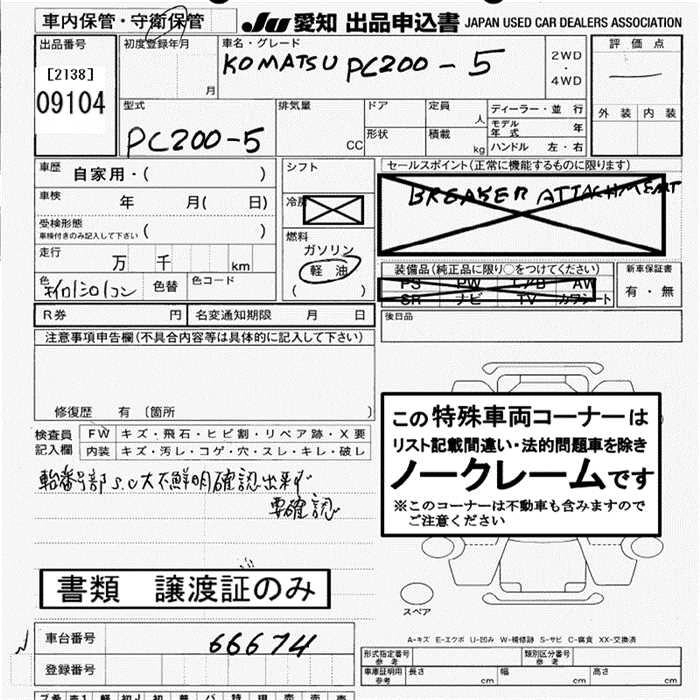 車内保管・守衛保管
JU 愛知 出品申込書 JAPAN USED CAR DEALERS ASSOCIATION
出品番号
[2138]
09104
初度登録年月
月
車名・グレード
KOMATSU PC200-5
2WD
・
4WD
評価点
外装 内装
型式
PC200-5
排気量
CC
ドア
形状
定員
人
積載
kg
ディーラー・並行
モデル年式 年
ハンドル 左・右
車歴
自家用・( )
車検
年 月( 日)
受検形態
車検付きのみ記入して下さい ( )
走行
万 千 km
色
色替
色コード
シフト
燃料
ガソリン
軽油
( )
セールスポイント(正常に機能するものに限ります)
BREAKER ATTACHMENT
装備品(純正品に限り○をつけてください)
PS PW エアB AW
SR ナビ TV カワシート
新車保証書
有・無
後日品
R券 円
名変通知期限 月 日
注意事項申告欄(不具合内容等は具体的に記入して下さい)
修復歴 有 〔箇所 〕
検査員記入欄
FW キズ・飛石・ヒビ割・リペア跡・X要
内装 キズ・汚レ・コゲ・穴・スレ・キレ・破レ
不鮮明確認出来ず
要確認
この特殊車両コーナーは
リスト記載間違い・法的問題車を除き
ノークレームです
※このコーナーは不動車も含みますので
ご注意ください
書類 譲渡証のみ
スペア
A-キズ E-エクボ U-凹み W-補修跡 S-サビ C-腐食 XX-交換済
車台番号 66674
登録番号
形式指定番号 参考
類別区分番号 参考
車庫証明用 参考 長さ cm 幅 cm 高さ cm